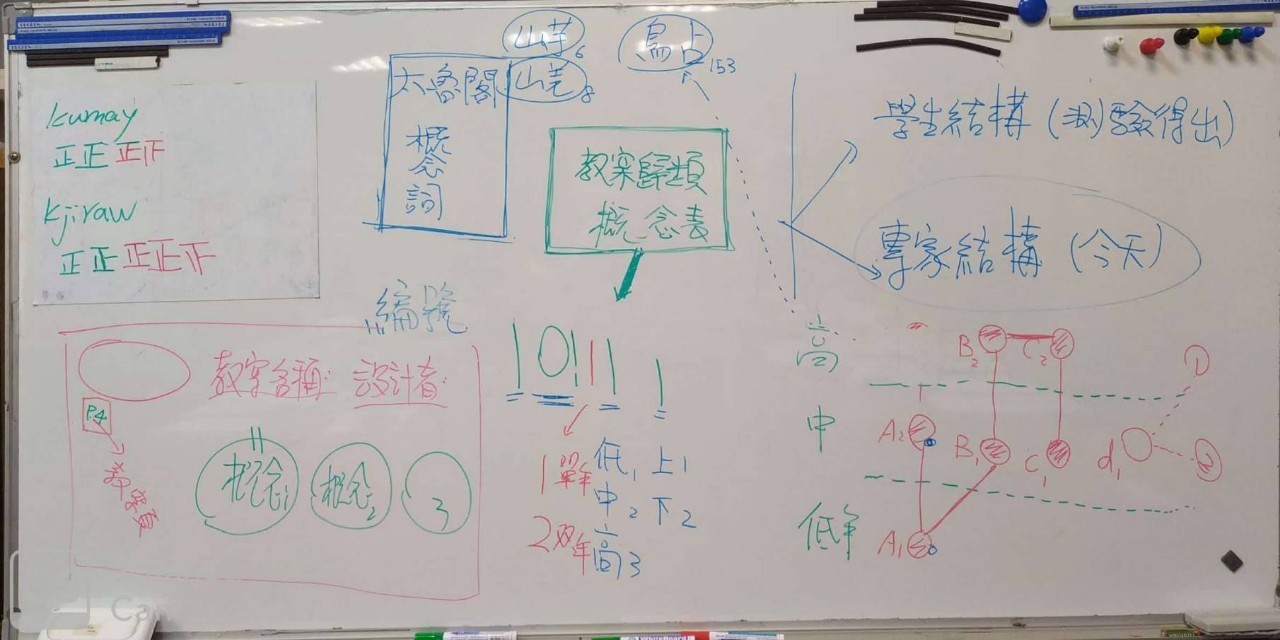 kumay
正正正下
kjiraw
正正正正下
山芋6
山芒8
太魯閣
概念詞
鳥占153
教案歸類
概念表
學生結構 (測)驗得出)
專家結構 (今天)
編號
1011111
教案名稱: 設計者:
P4
概念1
概念2
3
1單年
2双年
低1
中2
高3
上1
下2
高
中
低年
B2
C2
A2
B1
C1
d1
A1